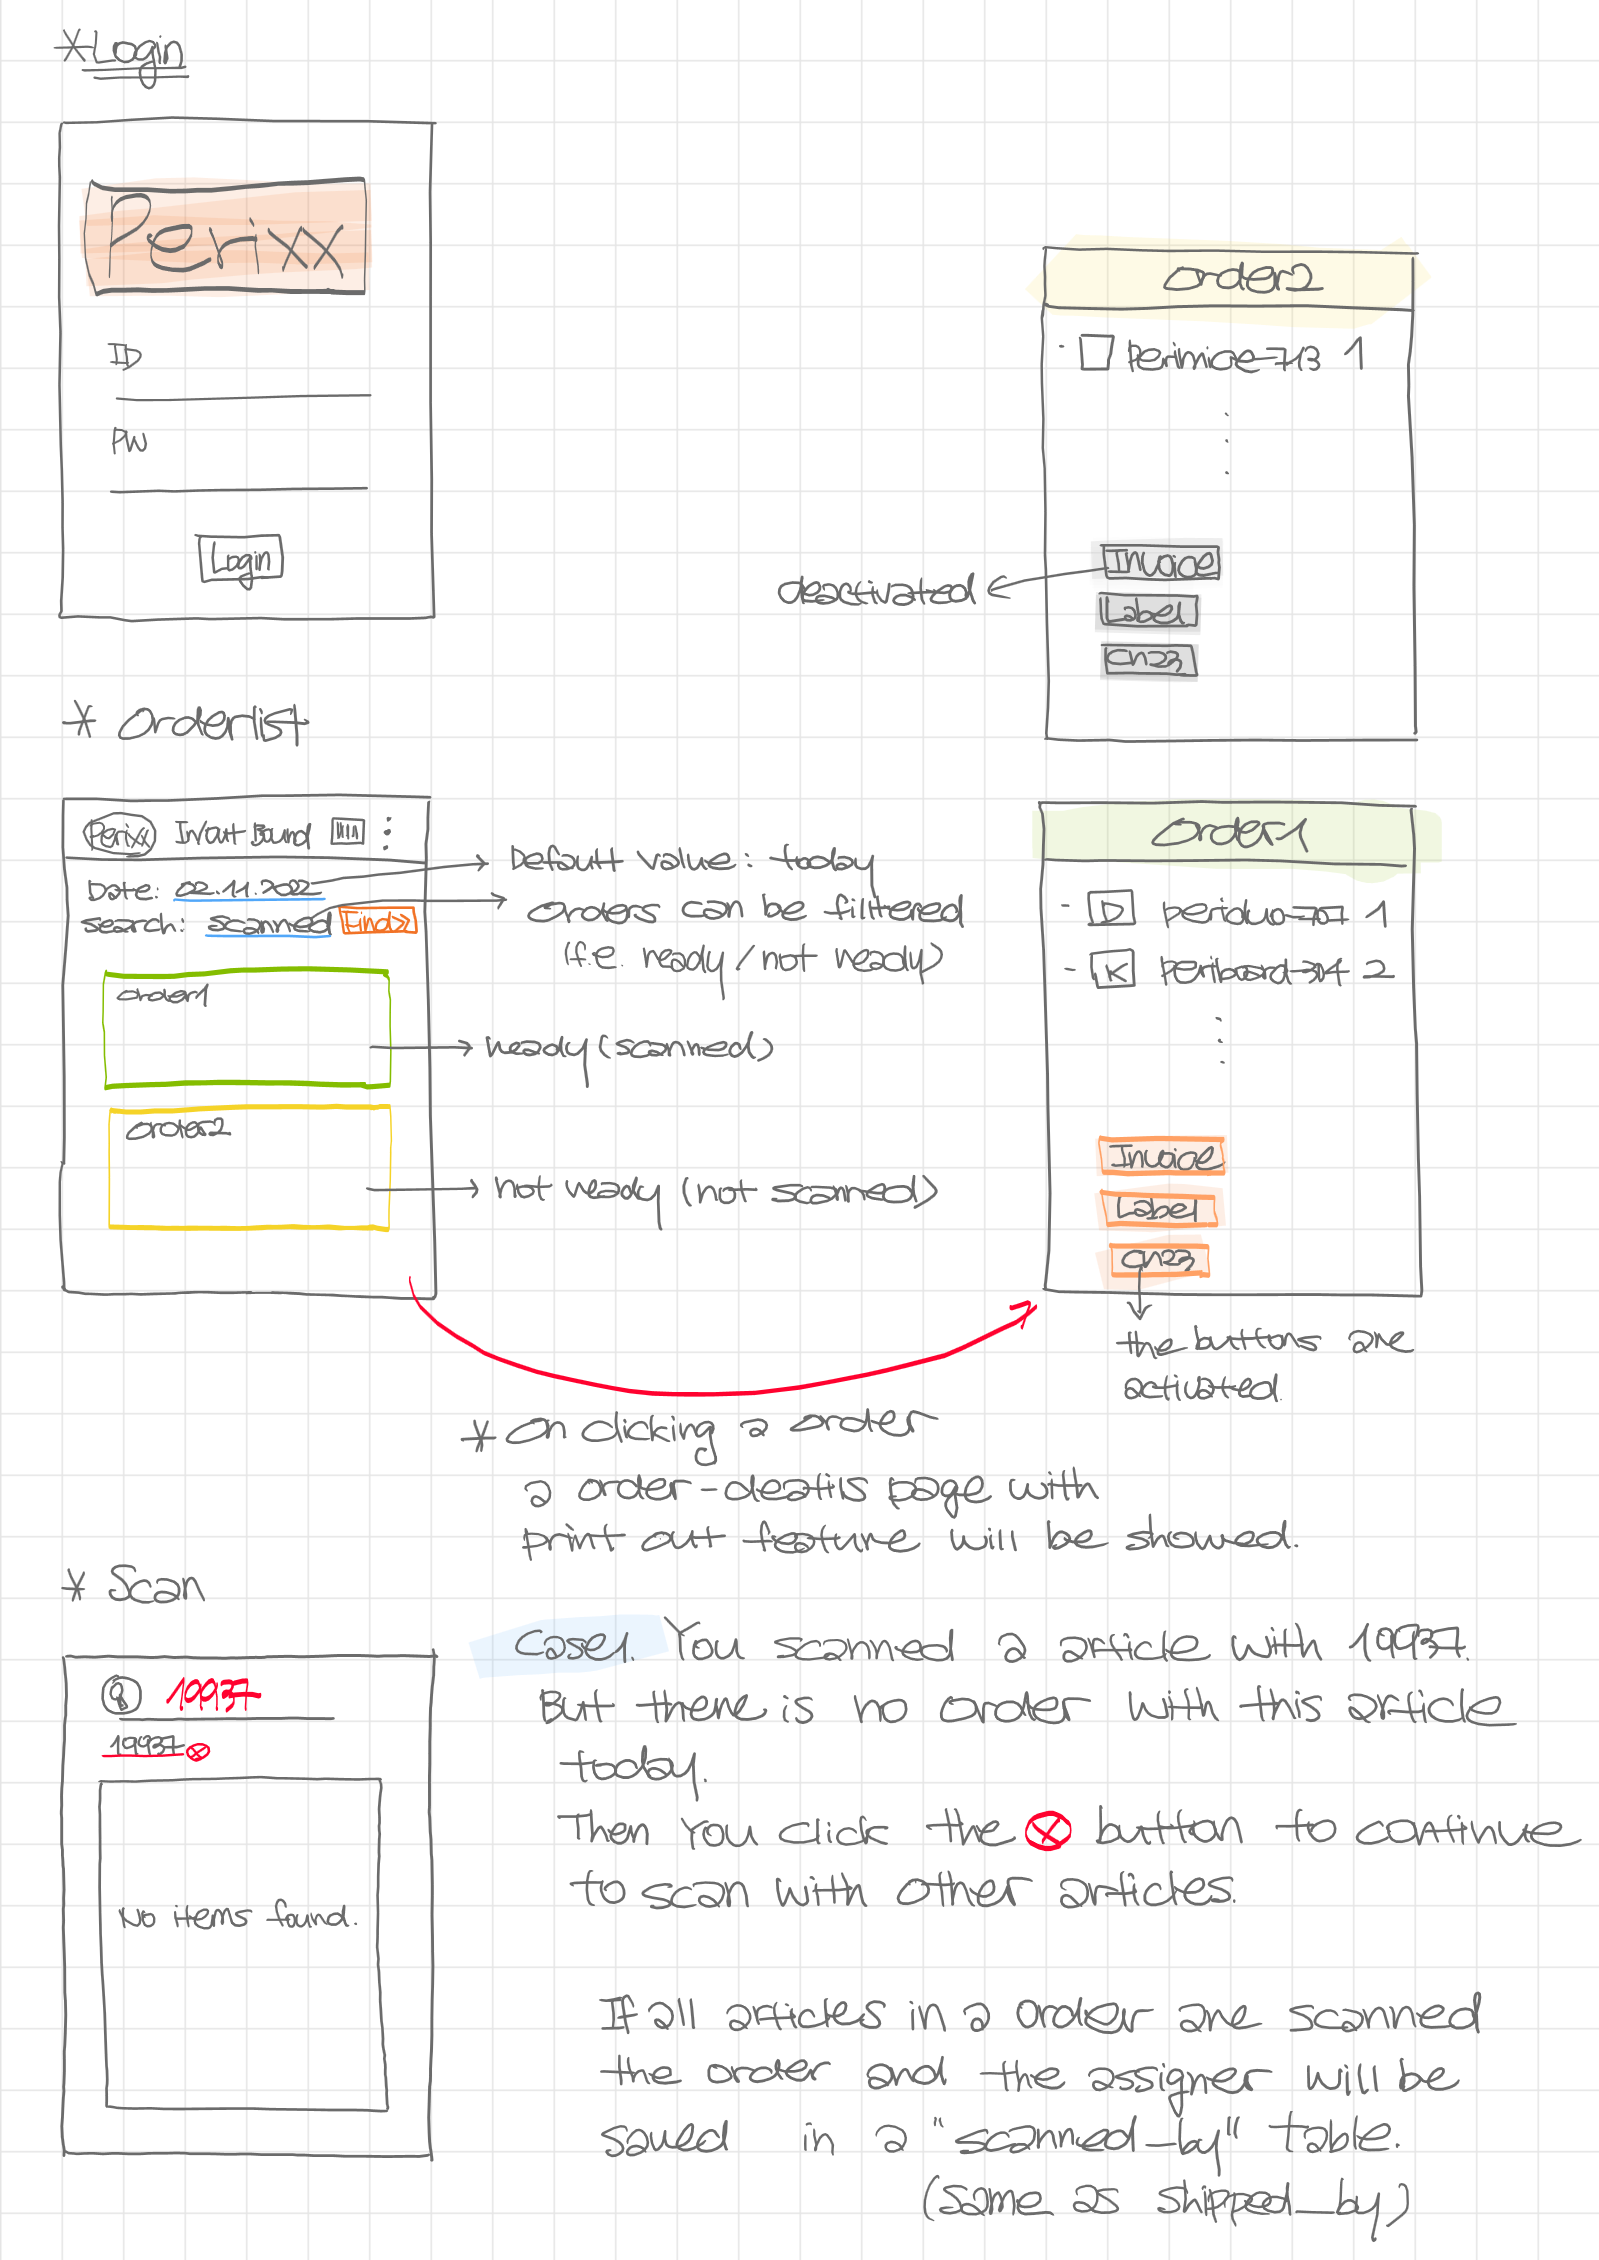 *Login
Perixx
ID
PW
Login
order2
- perimice-713 1
Invoice
deactivated
Label
CN23
* Orderlist
Perixx In/Out Bound
Date: 02.11.2022
Default value: today
search: scanned Find>
orders can be filltered
(f.e. ready/not ready)
order1
ready(scanned)
order2
not ready (not scanned)
Order1
- D periduo-707 1
- K Periboard-304 2
Invoice
Label
CN23
the buttons are
activated.
* On clicking a order
a order-deatils page with
print out feature will be showed.
* Scan
19937
19937
No items found.
Case1. You scanned a article with 19937.
But there is no order with this article
today.
Then You click the ⊗ button to continue
to scan with other articles.
If all articles in a order are scanned
the order and the assigner will be
saved in a "scanned_by" table.
(same as shipped_by)